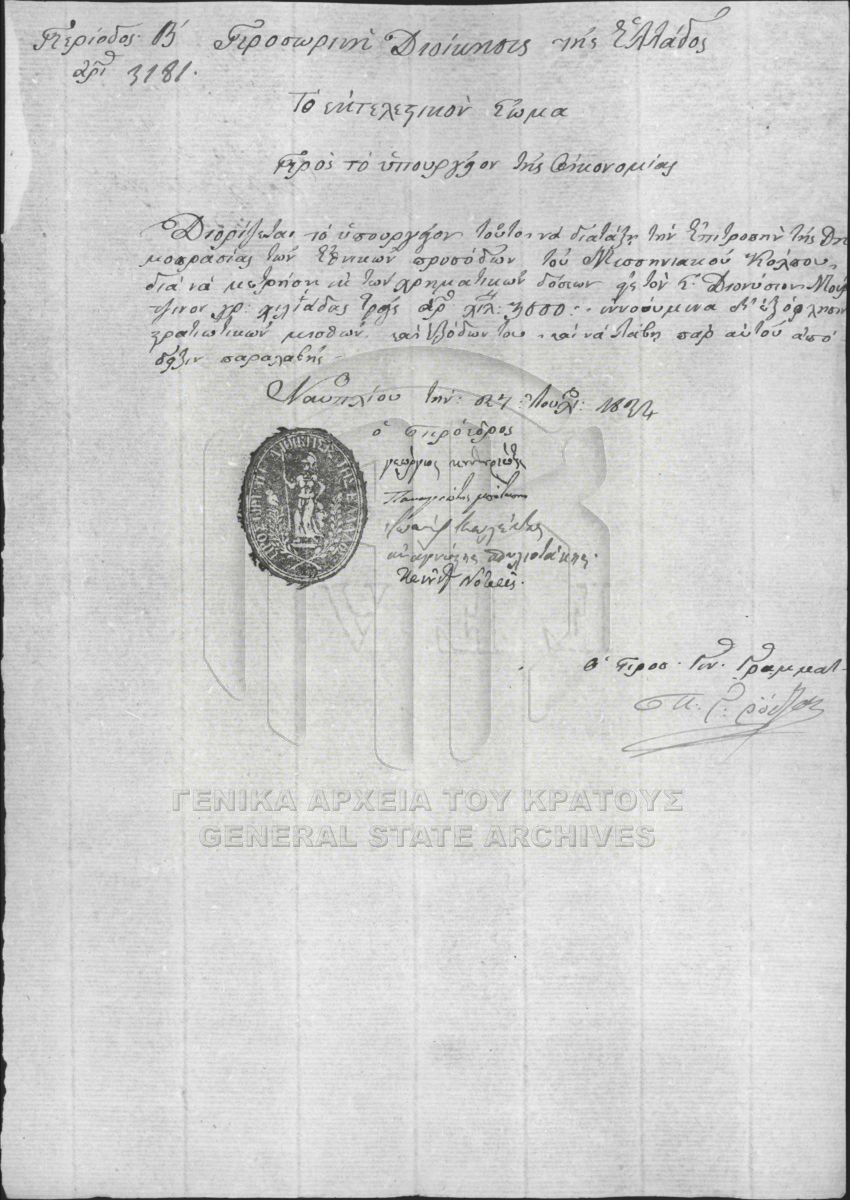 Περίοδος Β΄ Προσωρινὴ Διοίκησις τῆς Ἑλλάδος
ἀρ 3181.
Τὸ ἐκτελεστικὸν Σῶμα
Πρὸς τὸ ὑπουργεῖον τῆς Οἰκονομίας
Διορίζεται τὸ ὑπουργεῖον τοῦτο νὰ διατάξῃ τὴν Ἐπιτροπὴν τῆς Δη
μοπρασίας τῶν Ἐθνικῶν προσόδων τοῦ Μεσσηνιακοῦ Κόλπου,
διὰ νὰ μετρήσῃ ἐκ τῶν χρηματικῶν δόσεων τὸν Διονύσιον Μούρ
τζινον γρ: χιλιάδας τρεῖς ἀρ 3000: ἐξόφλησιν
στρατιωτικῶν μισθῶν, καὶ ἐξόδων του, καὶ νὰ λάβῃ παρ αὐτοῦ ἀπό
δειξιν παραλαβῆς
Ναυπλίου τὴν: 27: Ἰουλ: 1824
ὁ πρόεδρος
γεώργιος κουντουριώτης
Παναγιώτης μπότασης
Ἰωάννης Κωλέττης
αναγνώστης σπηλιοτάκης.
ΠΡΟΣΩΡΙΝΗ ΔΙΟΙΚΗΣΙΣ ΤΗΣ ΕΛΛΑΔΟΣ
ὁ Προσ. Γεν. Γραμματ
Π. Γ. Ῥόδιος
ΓΕΝΙΚΑ ΑΡΧΕΙΑ ΤΟΥ ΚΡΑΤΟΥΣ
GENERAL STATE ARCHIVES